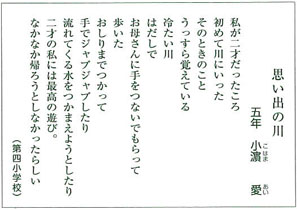 思い出の川
五年　小濵　愛
こはま　あい
私が二才だったころ
初めて川にいった
そのときのこと
うっすら覚えている
冷たい川
はだしで
お母さんに手をつないでもらって
歩いた
おしりまでつかって
手でジャブジャブしたり
流れてくる水をつかまえようとしたり
二才の私には最高の遊び。
なかなか帰ろうとしなかったらしい
（第四小学校）